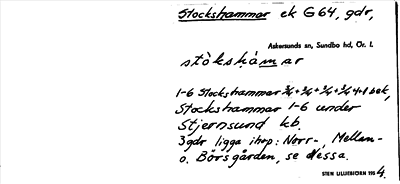 Stockshammar ek G64, gdr,
Askersunds sn, Sundbo hd, Ör. l.
stòkshámar
1-6 Stockshammar 3/4+3/4+3/4+3/4 4+1 bek,
Stockshammar 1-6 under
Stjernsund kb.
3 gdr ligga ihop: Norr-, Mellan-
o. Börsgården, se dessa.
STEN LILLIEBJÖRN 1954.